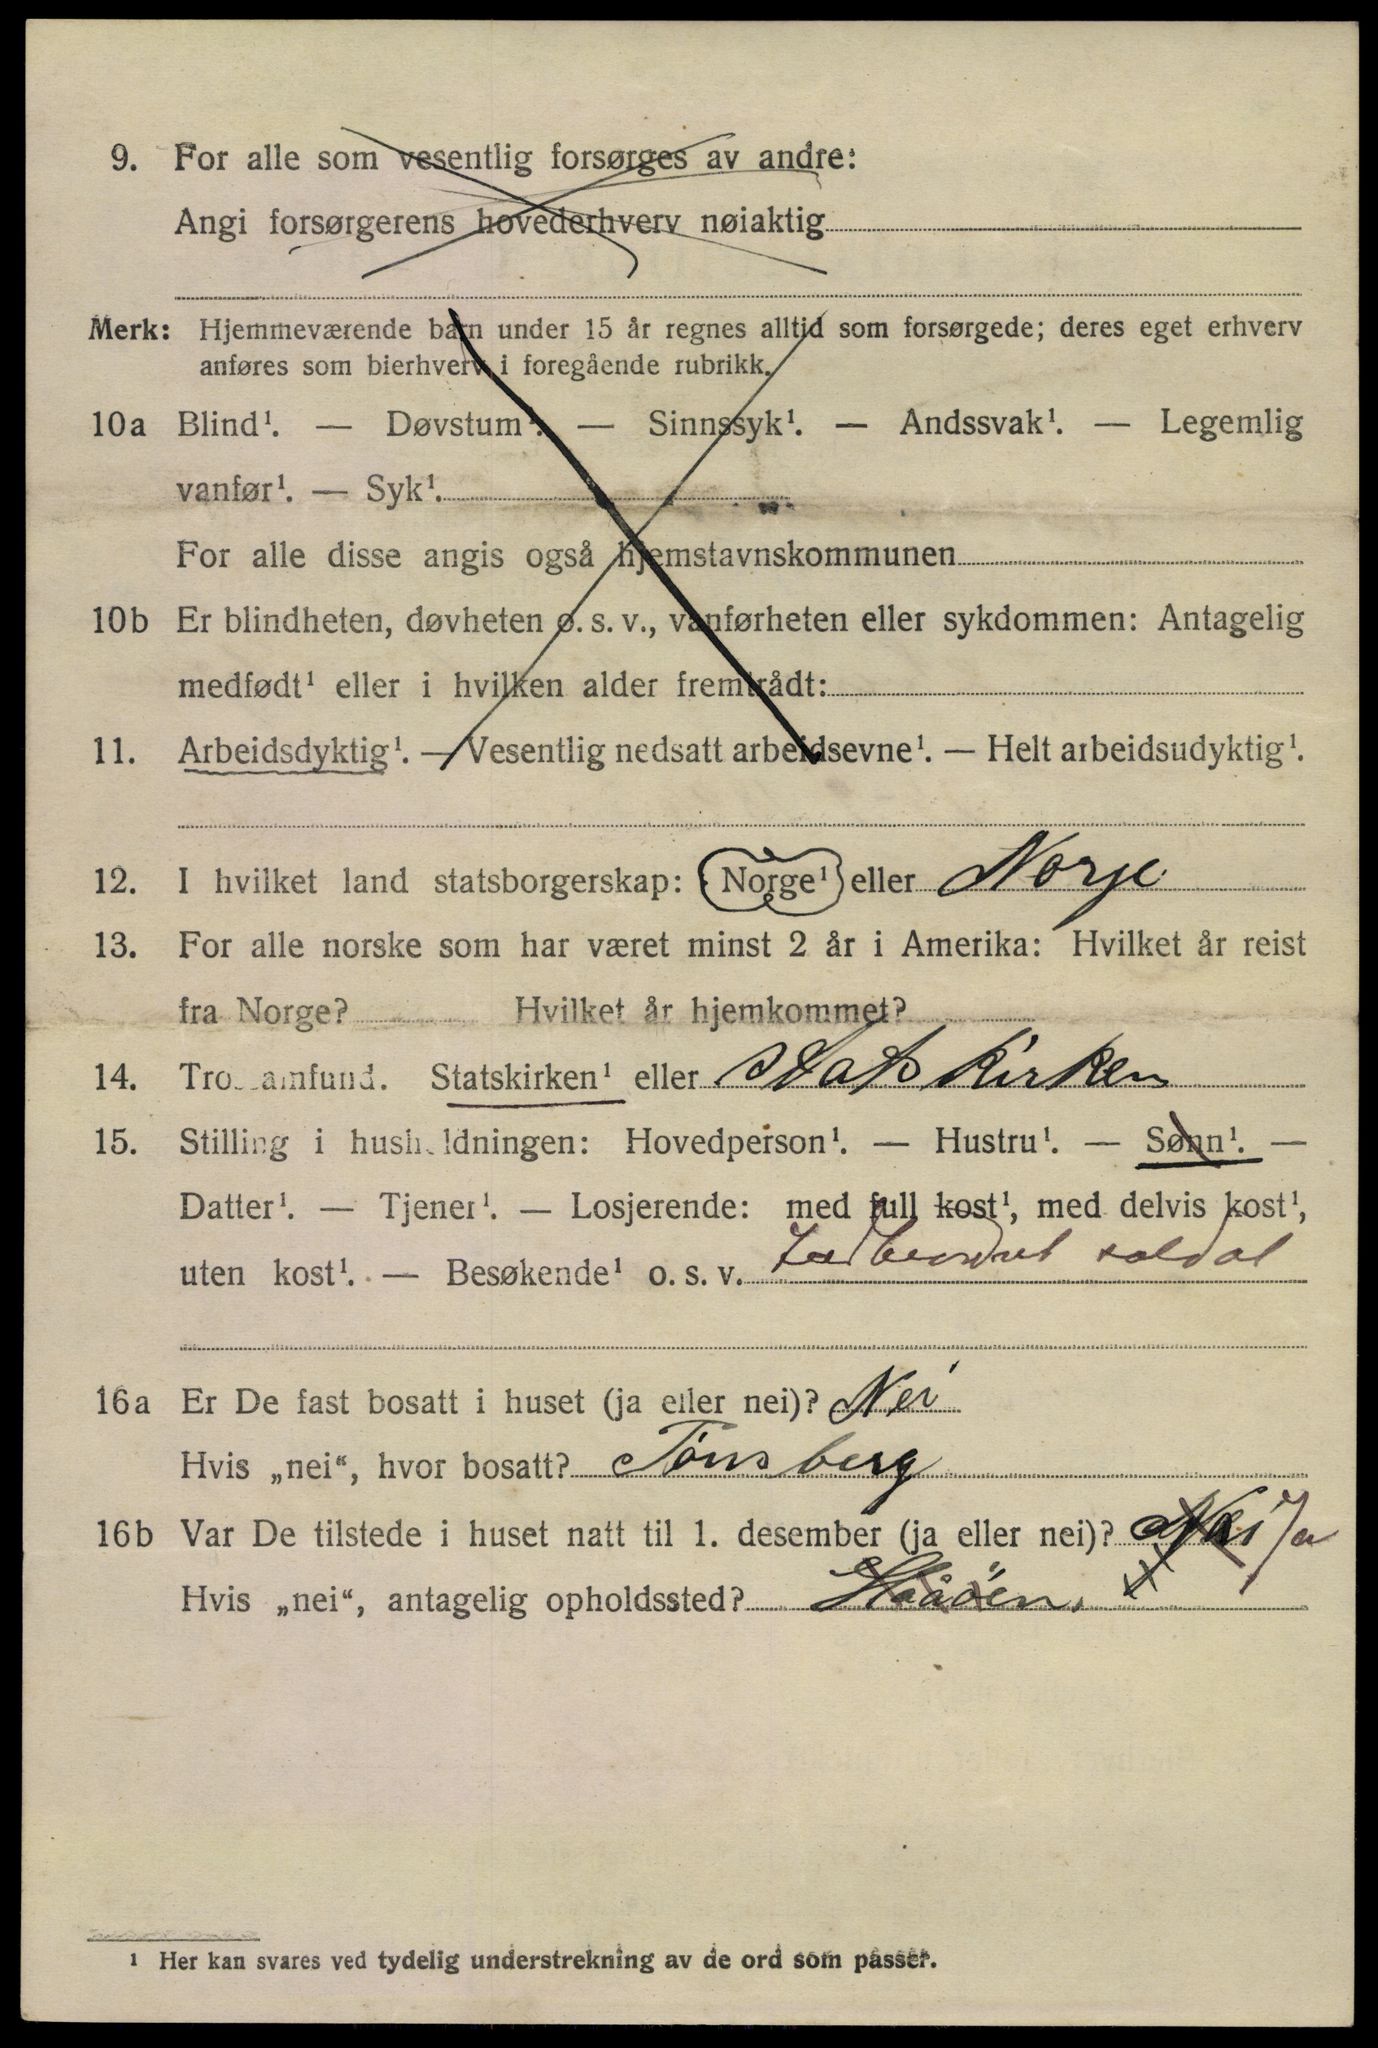 9. For alle som vesentlig forsørges av andre:
Angi forsørgerens hovederhverv nøiaktig
Merk: Hjemmeværende barn under 15 år regnes alltid som forsørgede; deres eget erhverv
anføres som bierhverv i foregående rubrikk.
10a Blind¹. — Døvstum¹. — Sinnssyk¹. — Andssvak¹. — Legemlig
vanfør¹. — Syk¹.
For alle disse angis også hjemstavnskommunen
10b Er blindheten, døvheten o. s. v., vanførheten eller sykdommen: Antagelig
medfødt¹ eller i hvilken alder fremtrådt:
11. Arbeidsdyktig¹. — Vesentlig nedsatt arbeidsevne¹. — Helt arbeidsudyktig¹.
12. I hvilket land statsborgerskap: Norge¹ eller Norge
13. For alle norske som har været minst 2 år i Amerika: Hvilket år reist
fra Norge? Hvilket år hjemkommet?
14. Trossamfund. Statskirken¹ eller Statskirken
15. Stilling i husholdningen: Hovedperson¹. — Hustru¹. — Sønn¹. —
Datter¹. — Tjener¹. — Losjerende: med full kost¹, med delvis kost¹,
uten kost¹. — Besøkende¹ o. s. v. soldat
16a Er De fast bosatt i huset (ja eller nei)? Nei
Hvis „nei“, hvor bosatt? Tönsberg
16b Var De tilstede i huset natt til 1. desember (ja eller nei)? Nei Ja
Hvis „nei“, antagelig opholdssted? Håöen.
¹ Her kan svares ved tydelig understrekning av de ord som passer.